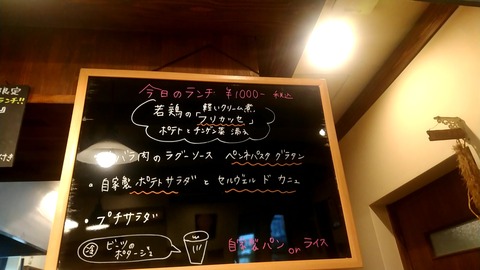 今日のランチ ¥1000- 税込
軽いクリーム煮
若鶏の「フリカッセ」
ポテトとチンゲン菜 添え
バラ肉のラグーソース ペンネパスタ グラタン
・自家製 ポテトサラダ と セルヴェル ド カニュ
・プチサラダ
ビーツの
ポタージュ
自家製パン or ライス
限定
ランチ!!
付き